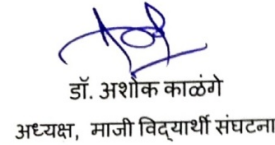 डॉ. अशोक काळंगे
अध्यक्ष, माजी विद्यार्थी संघटना